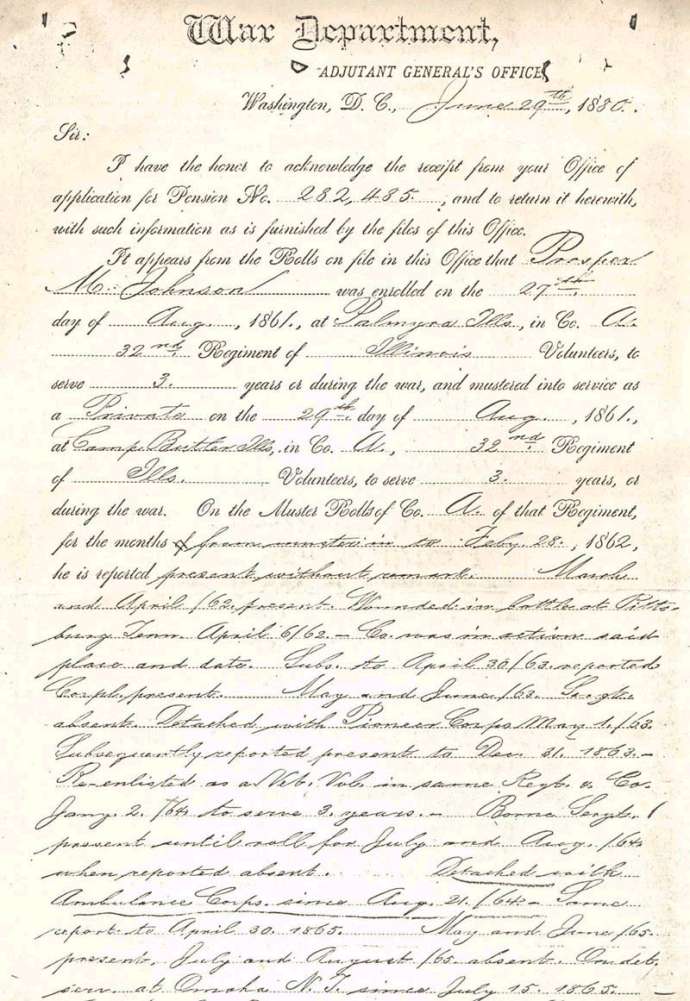 War Department,
ADJUTANT GENERAL'S OFFICE,
Washington, D. C., June 29th, 1880.
Sir:
I have the honor to acknowledge the receipt from your Office of
application for Pension No. 282,485, and to return it herewith,
with such information as is furnished by the files of this Office.
It appears from the Rolls on file in this Office that Prosper
M. Johnson was enrolled on the 27th
day of Aug, 1861, at Palmyra Ills, in Co. A.
32nd Regiment of Illinois Volunteers, to
serve 3. years or during the war, and mustered into service as
a Private on the 29th day of Aug, 1861,
at Camp Butler Ills, in Co. A, 32nd Regiment
of Ills. Volunteers, to serve 3. years, or
during the war. On the Muster Rolls of Co. A. of that Regiment,
for the months of from muster in to Feby 28., 1862,
he is reported present without remark. March
and April /62. present. Wounded in battle at Pitts-
burg Tenn. April 6/62. – Co. was in action said
place and date. Subs. to April 30/63. reported
Corpl. present. May and June/63. Sergt.
absent. Detached with Pioneer Corps May 1./63.
Subsequently reported present to Dec. 31. 1863. –
Re-enlisted as a Vet. Vol. in same Regt. & Co.
Jany. 2. /64. to serve 3. years. – Borne Sergt.
present until roll for July and Aug. /64.
when reported absent. Detached with
Ambulance Corps. since Aug. 21. /64. – Same
report to April 30. 1865. May and June /65.
present. July and August /65 absent. On det.
serv. at Omaha N. T. since July 15. 1865. –